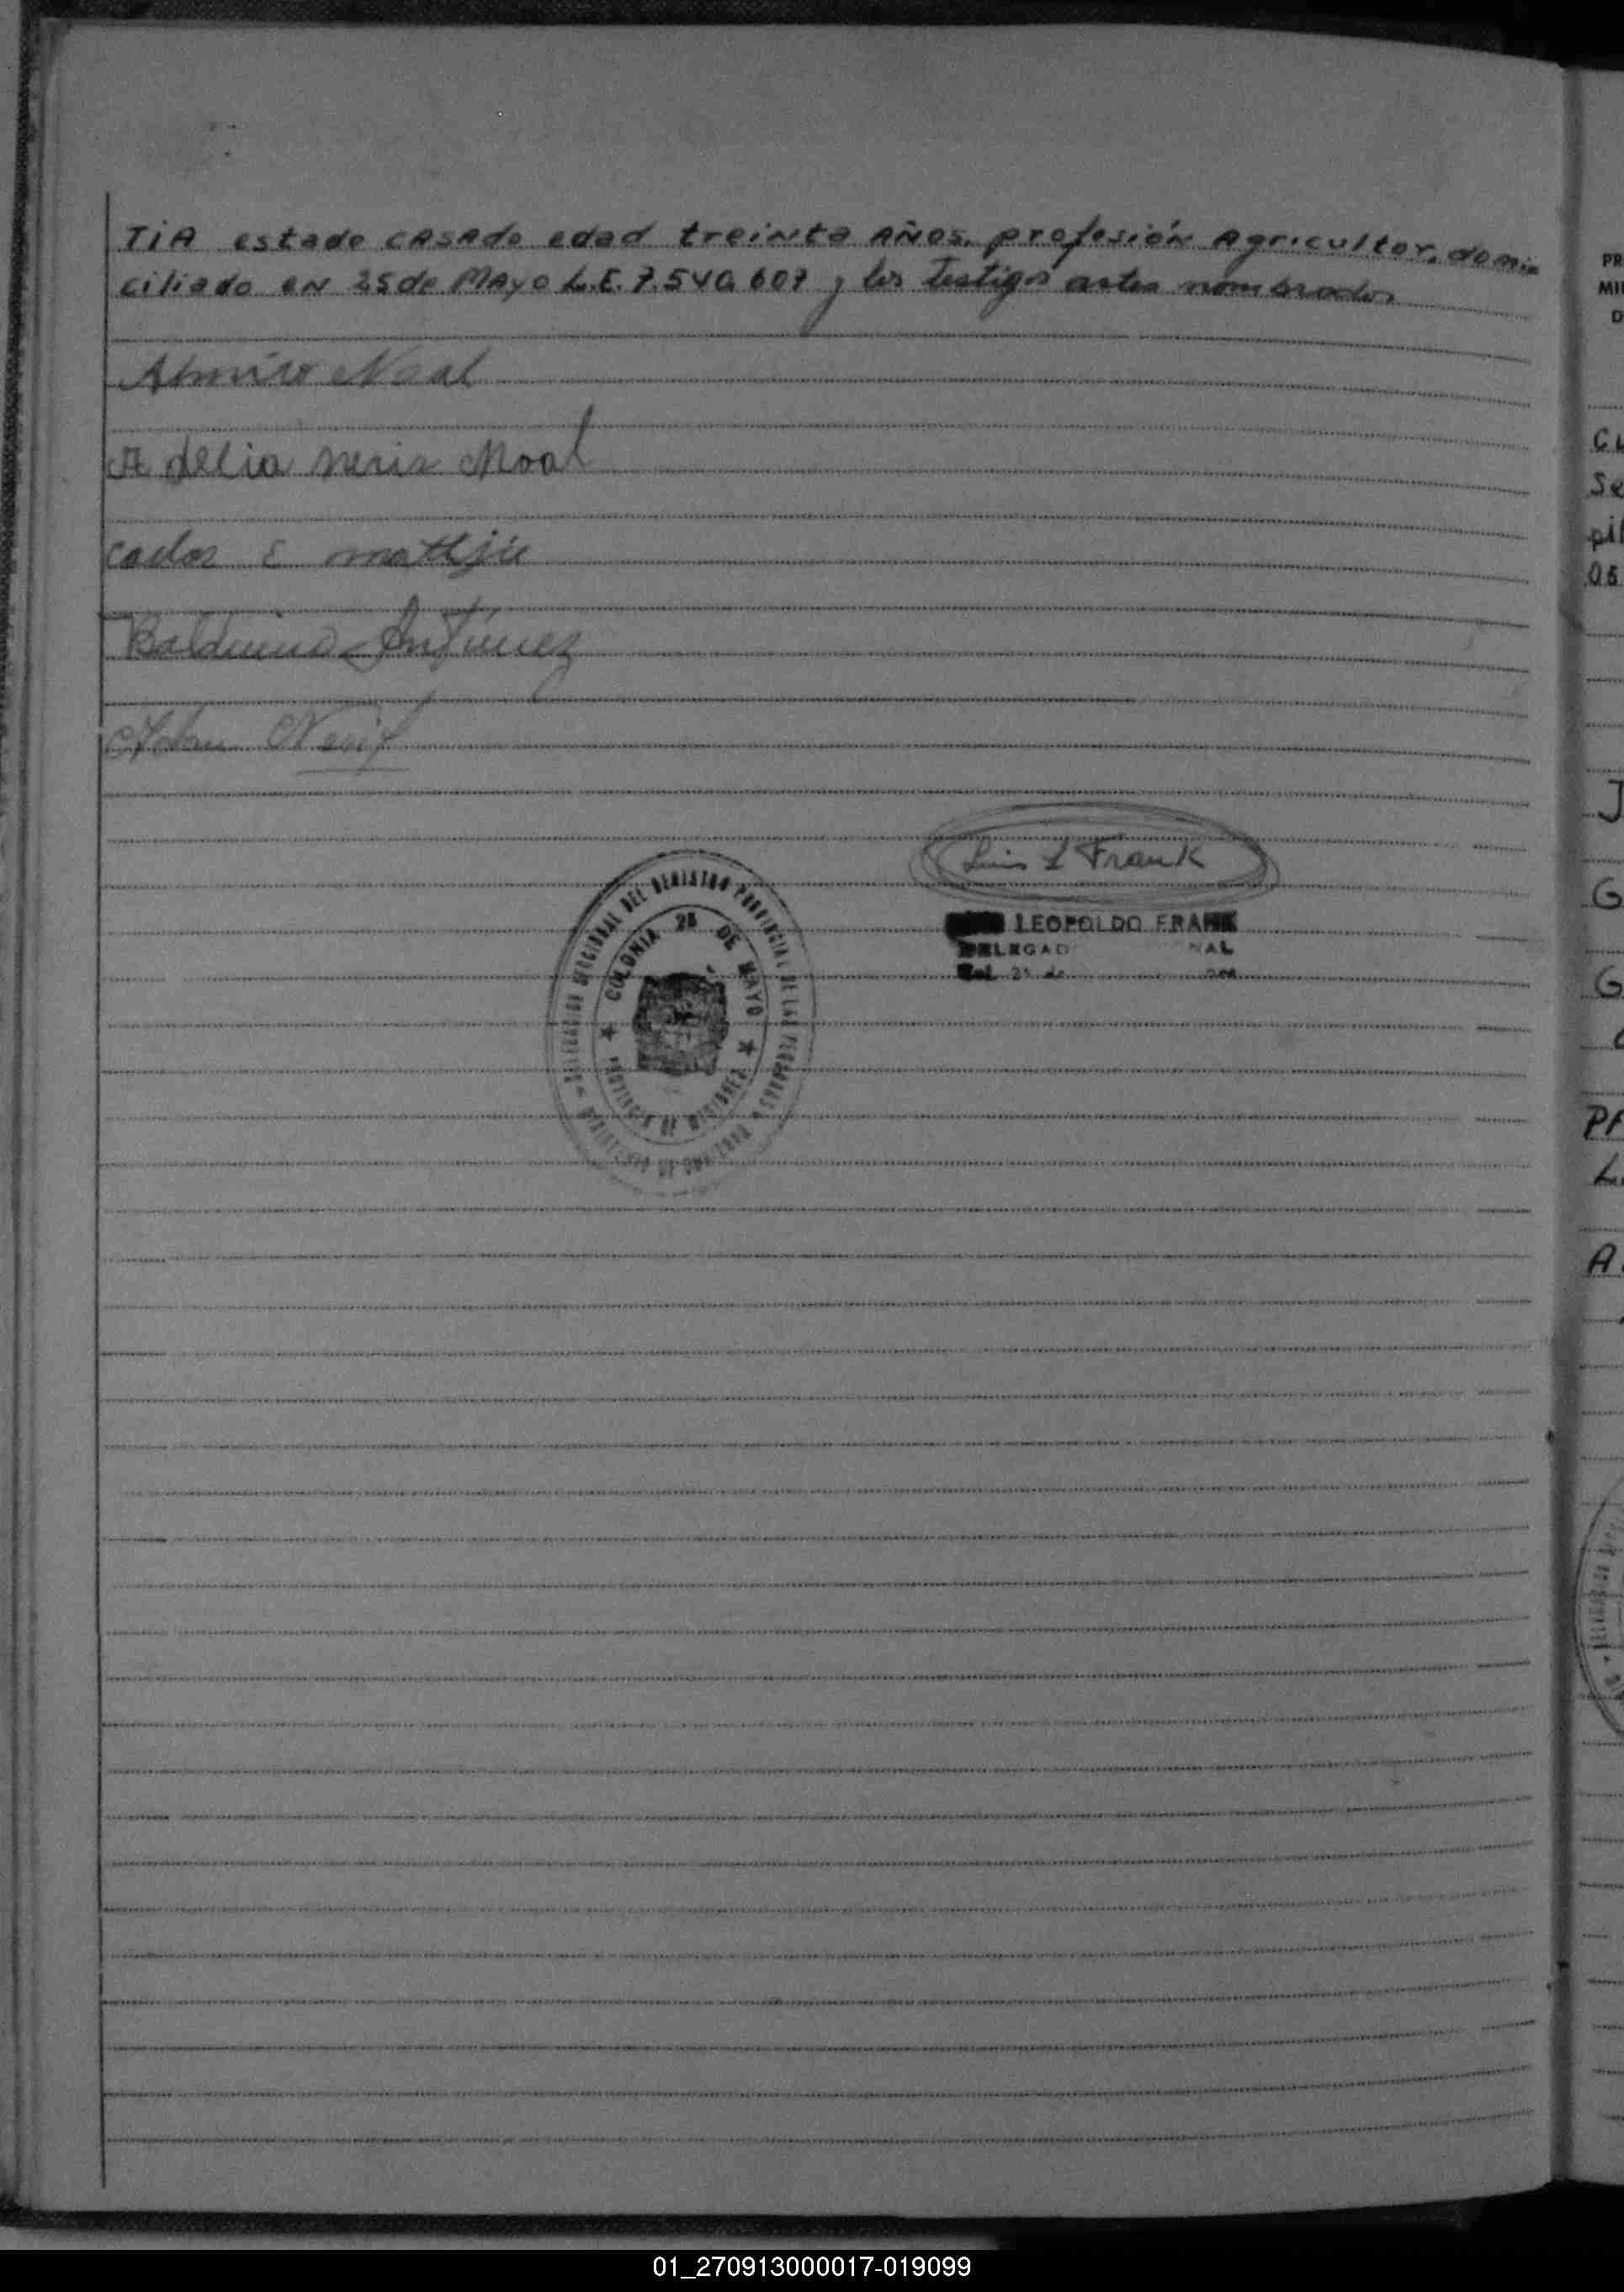 TiA estado CASADo edad treinta AÑos, profesión Agricultor, domi-
ciliado EN 25 de MAyo L.E. 7.540.607 y los testigos antes nombrados
Almiro Noal
Adelia neris Noal
Carlos E
Balduino Antunez
Luis L Frank
LEOPOLDO FRANK
DELEGAD NAL
Col. 25 de
DEL REGISTRO PROVINCIAL DE LAS PERSONAS
COLONIA 25 DE MAYO
PROVINCIA DE MISIONES
PR
MI
D
CL
Se
pil
05
J
G
G
PA
L.
A
01_270913000017-019099